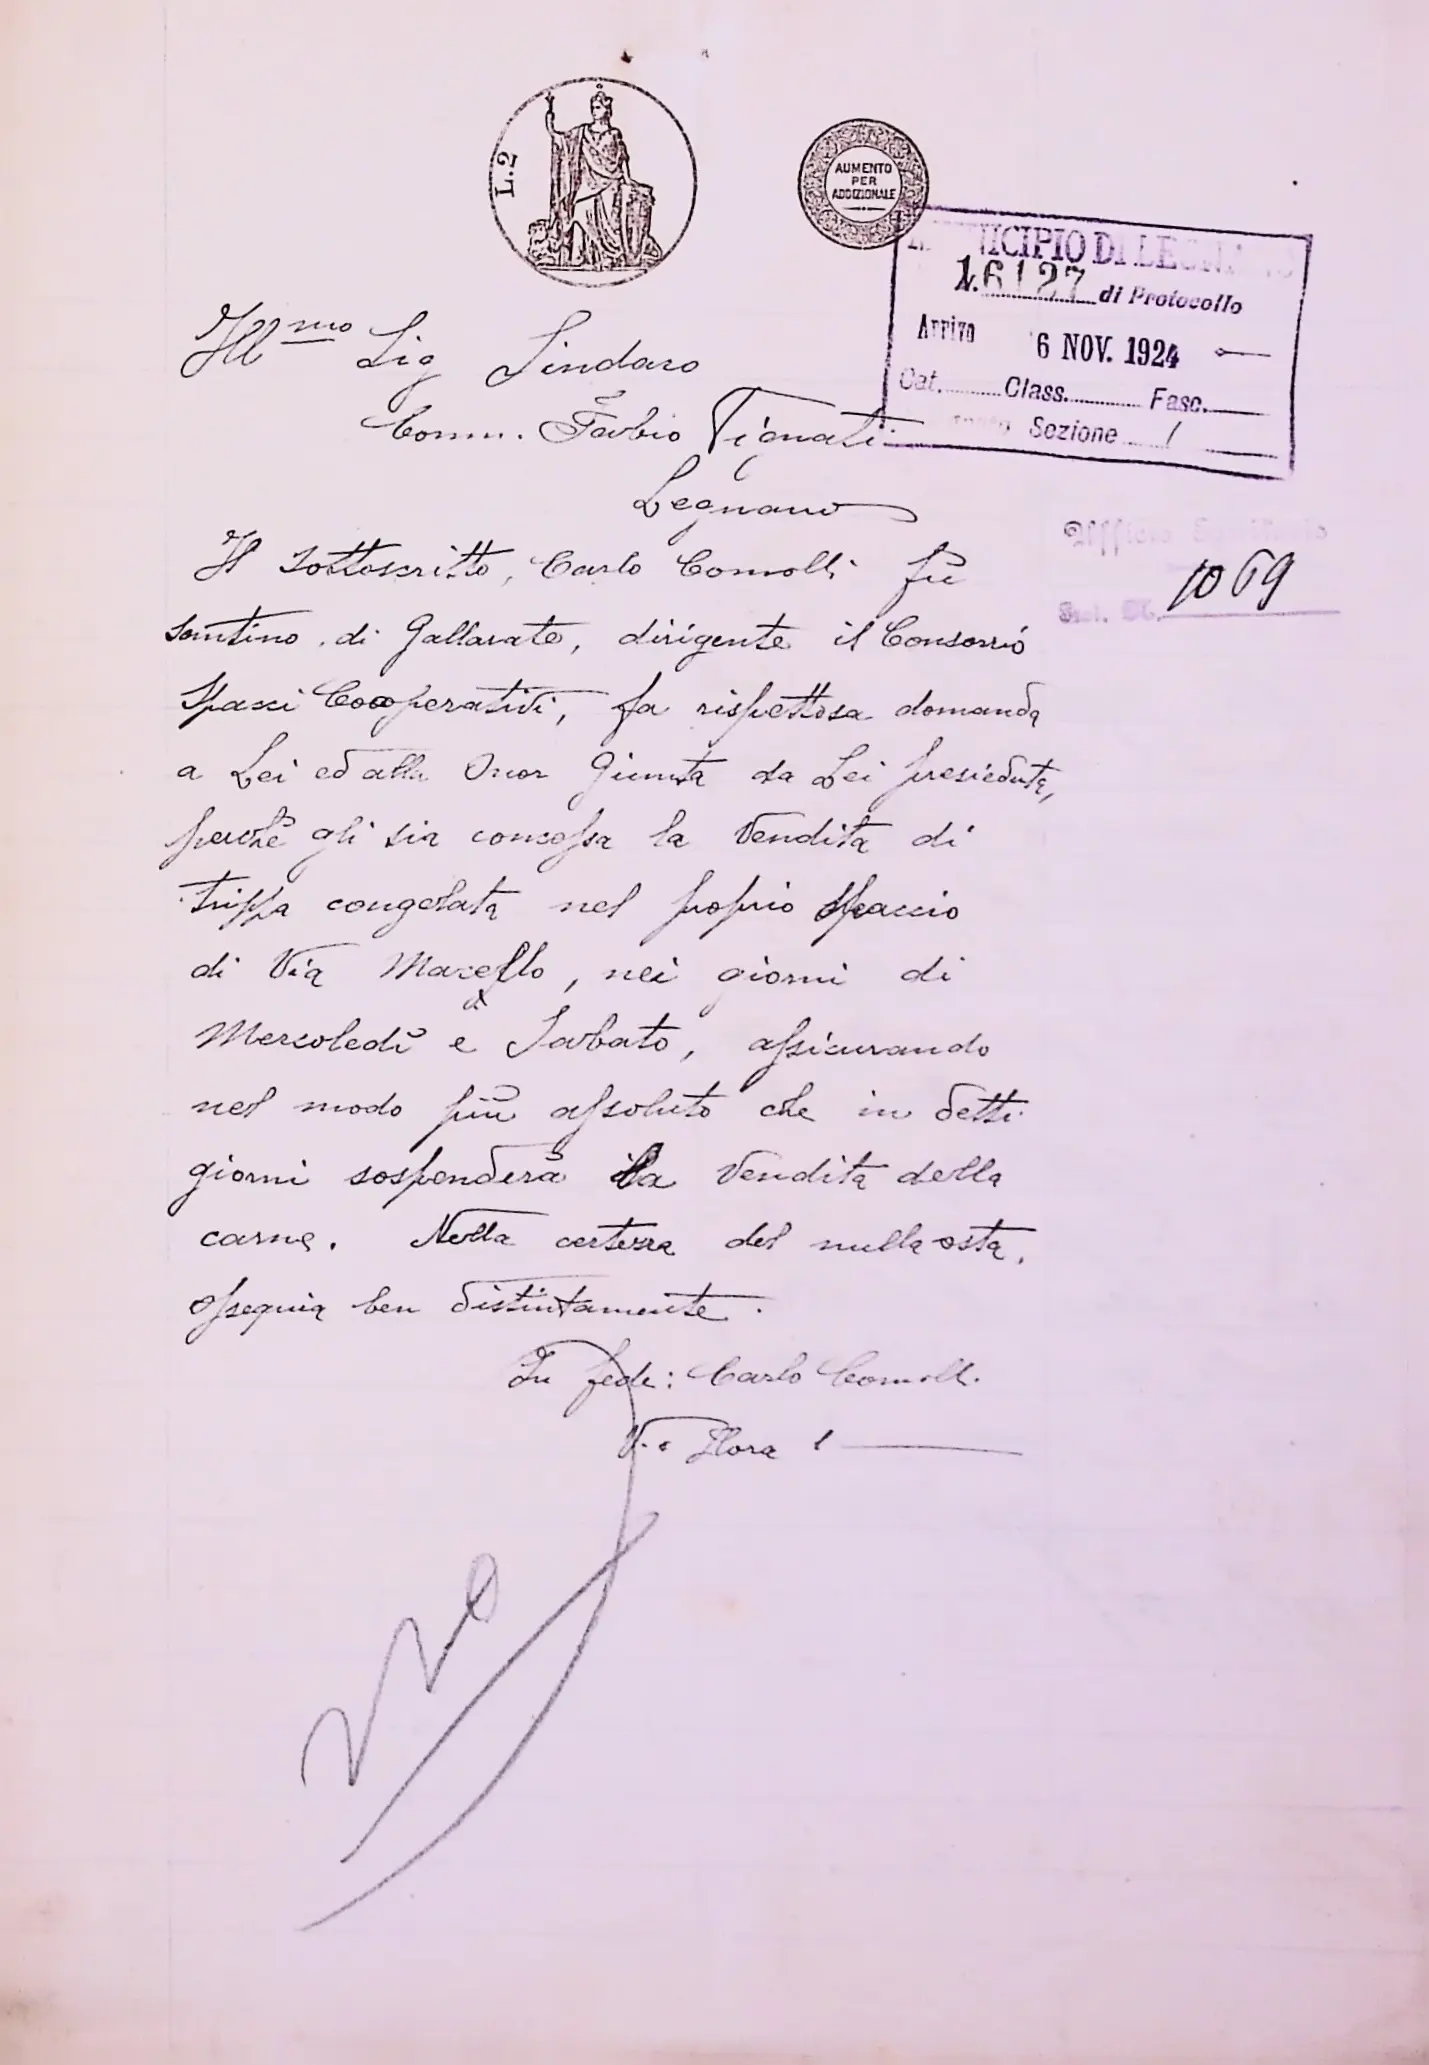 L.2
AUMENTO
PER
ADDIZIONALE
MUNICIPIO DI LEGNANO
N. 16127 di Protocollo
Arrivo 6 NOV. 1924
Cat. Class. Fasc.
Sezione 1
Ill mo Sig Sindaco
Comm. Fabio Vignati
Legnano
Ufficio
1069
Il sottoscritto, Carlo Comolli fù
Santino di Gallarate, dirigente il Consorzio
Spacci Cooperativi, fa rispettosa domanda
a Lei ed alla Onor Giunta da Lei presieduta,
perchè gli sia concessa la Vendita di
trippa congelata nel proprio spaccio
di Via Macello, nei giorni di
Mercoledì e Sabato, assicurando
nel modo più assoluto che in detti
giorni sospenderà la Vendita della
carne. Nella certezza del nulla osta,
ossequia ben distintamente.
In fede: Carlo Comolli
Via Flora 1